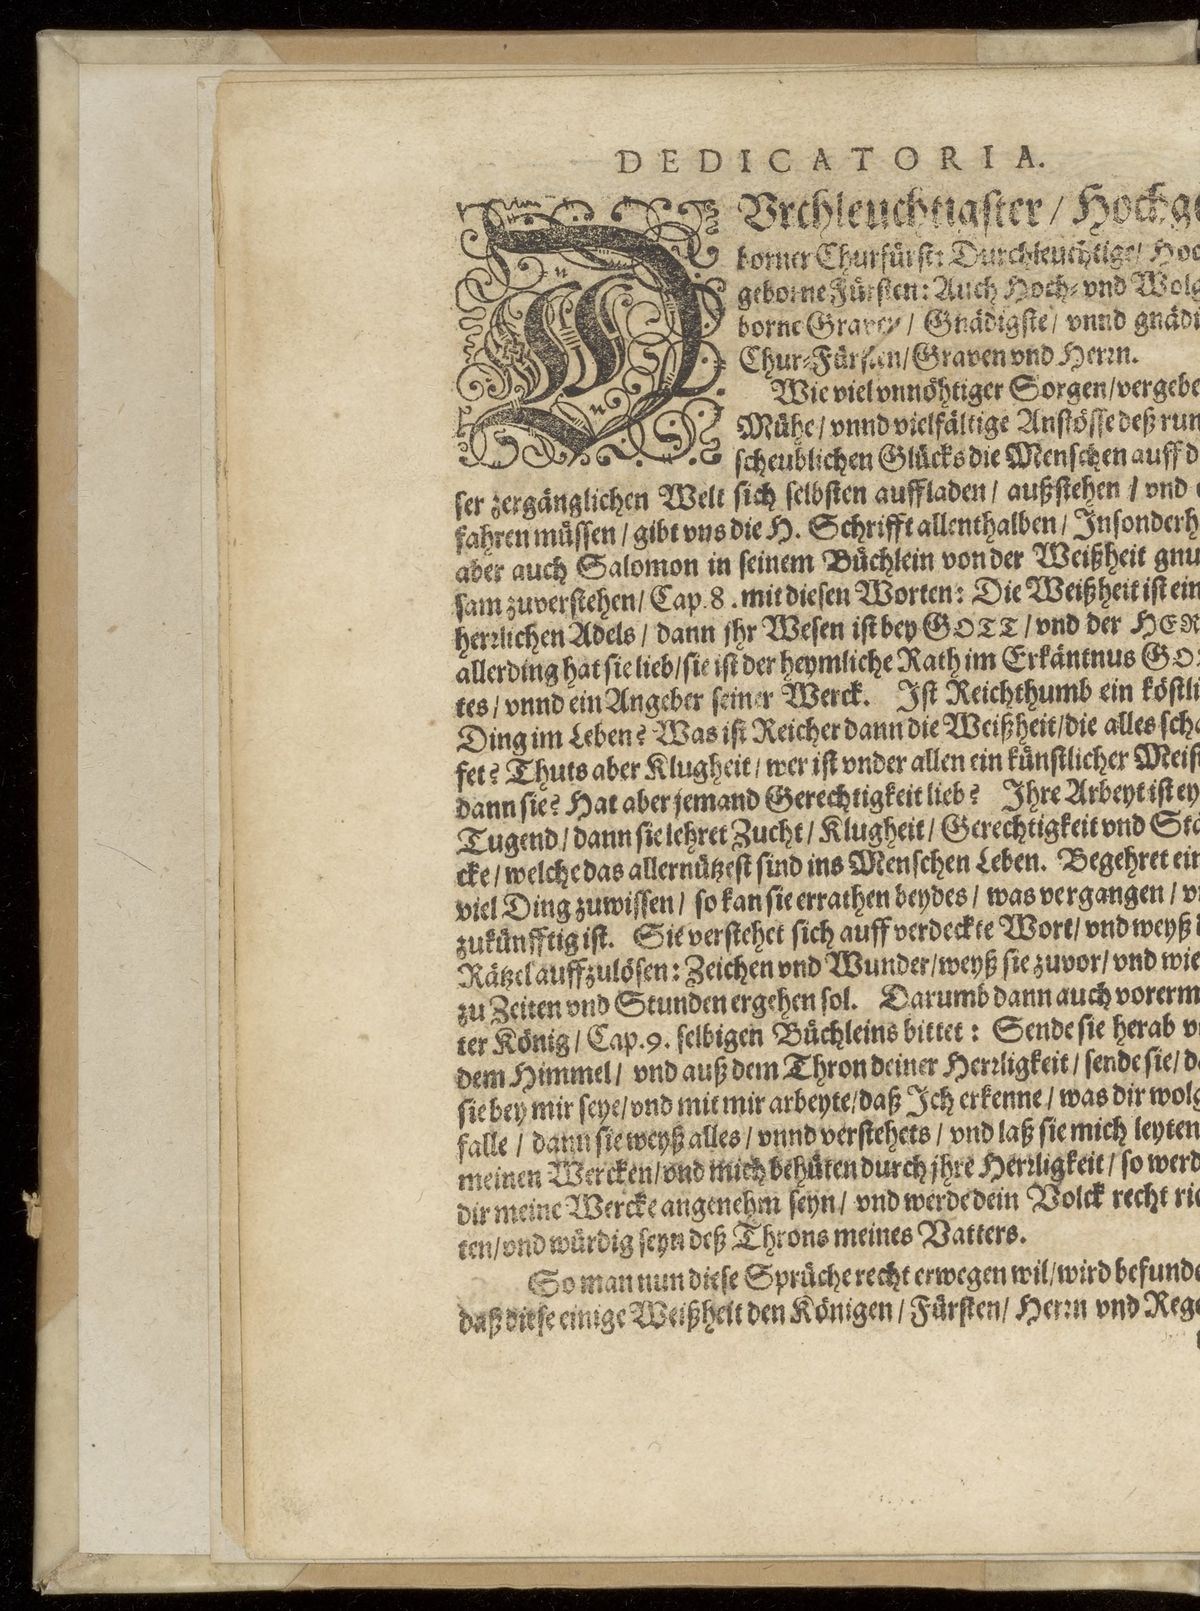 DEDICATORIA.
DVrchleuchtigster / Hochge
borner Churfürst: Durchleuchtige / Hoc
geborne Fürsten: Auch Hoch- vnd Wolg
borne Graven / Gnädigste / vnnd gnädi
Chur-Fürsten / Graven vnd Herrn.
Wie viel vnnöhtiger Sorgen / vergebe
Mühe / vnnd vielfältige Anstösse deß run
scheublichen Glücks die Menschen auff d
ser zergänglichen Welt sich selbsten auffladen / außstehen / vnd e
fahren müssen / gibt vns die H. Schrifft allenthalben / Insonderh
aber auch Salomon in seinem Büchlein von der Weißheit gnu
sam zuverstehen / Cap. 8. mit diesen Worten: Die Weißheit ist ein
herrlichen Adels / dann jhr Wesen ist bey GOTT / vnd der HER
allerding hat sie lieb / sie ist der heymliche Rath im Erkäntnus GOT
tes / vnnd ein Angeber seiner Werck. Ist Reichthumb ein köstli
Ding im Leben? Was ist Reicher dann die Weißheit / die alles scha
fet? Thuts aber Klugheit / wer ist vnder allen ein künstlicher Meist
dann sie? Hat aber jemand Gerechtigkeit lieb? Ihre Arbeyt ist ey
Tugend / dann sie lehret Zucht / Klugheit / Gerechtigkeit vnd Stä
cke / welche das allernützest sind ins Menschen Leben. Begehret ein
viel Ding zuwissen / so kan sie errathen beydes / was vergangen / vn
zukünfftig ist. Sie verstehet sich auff verdeckte Wort / vnd weyß d
Rätzel auffzulösen: Zeichen vnd Wunder / weyß sie zuvor / vnd wie
zu Zeiten vnd Stunden ergehen sol. Darumb dann auch vorerm
ter König / Cap. 9. selbigen Büchleins bittet: Sende sie herab vo
dem Himmel / vnd auß dem Thron deiner Herrligkeit / sende sie / da
sie bey mir seye / vnd mit mir arbeyte / daß Ich erkenne / was dir wolg
falle / dann sie weyß alles / vnnd verstehets / vnd laß sie mich leyten
meinen Wercken / vnd mich behüten durch jhre Herrligkeit / so werd
dir meine Wercke angenehm seyn / vnd werde dein Volck recht ric
ten / vnd würdig seyn deß Throns meines Vatters.
So man nun diese Sprüche recht erwegen wil / wird befunde
daß diese einige Weißheit den Königen / Fürsten / Herrn vnd Rege